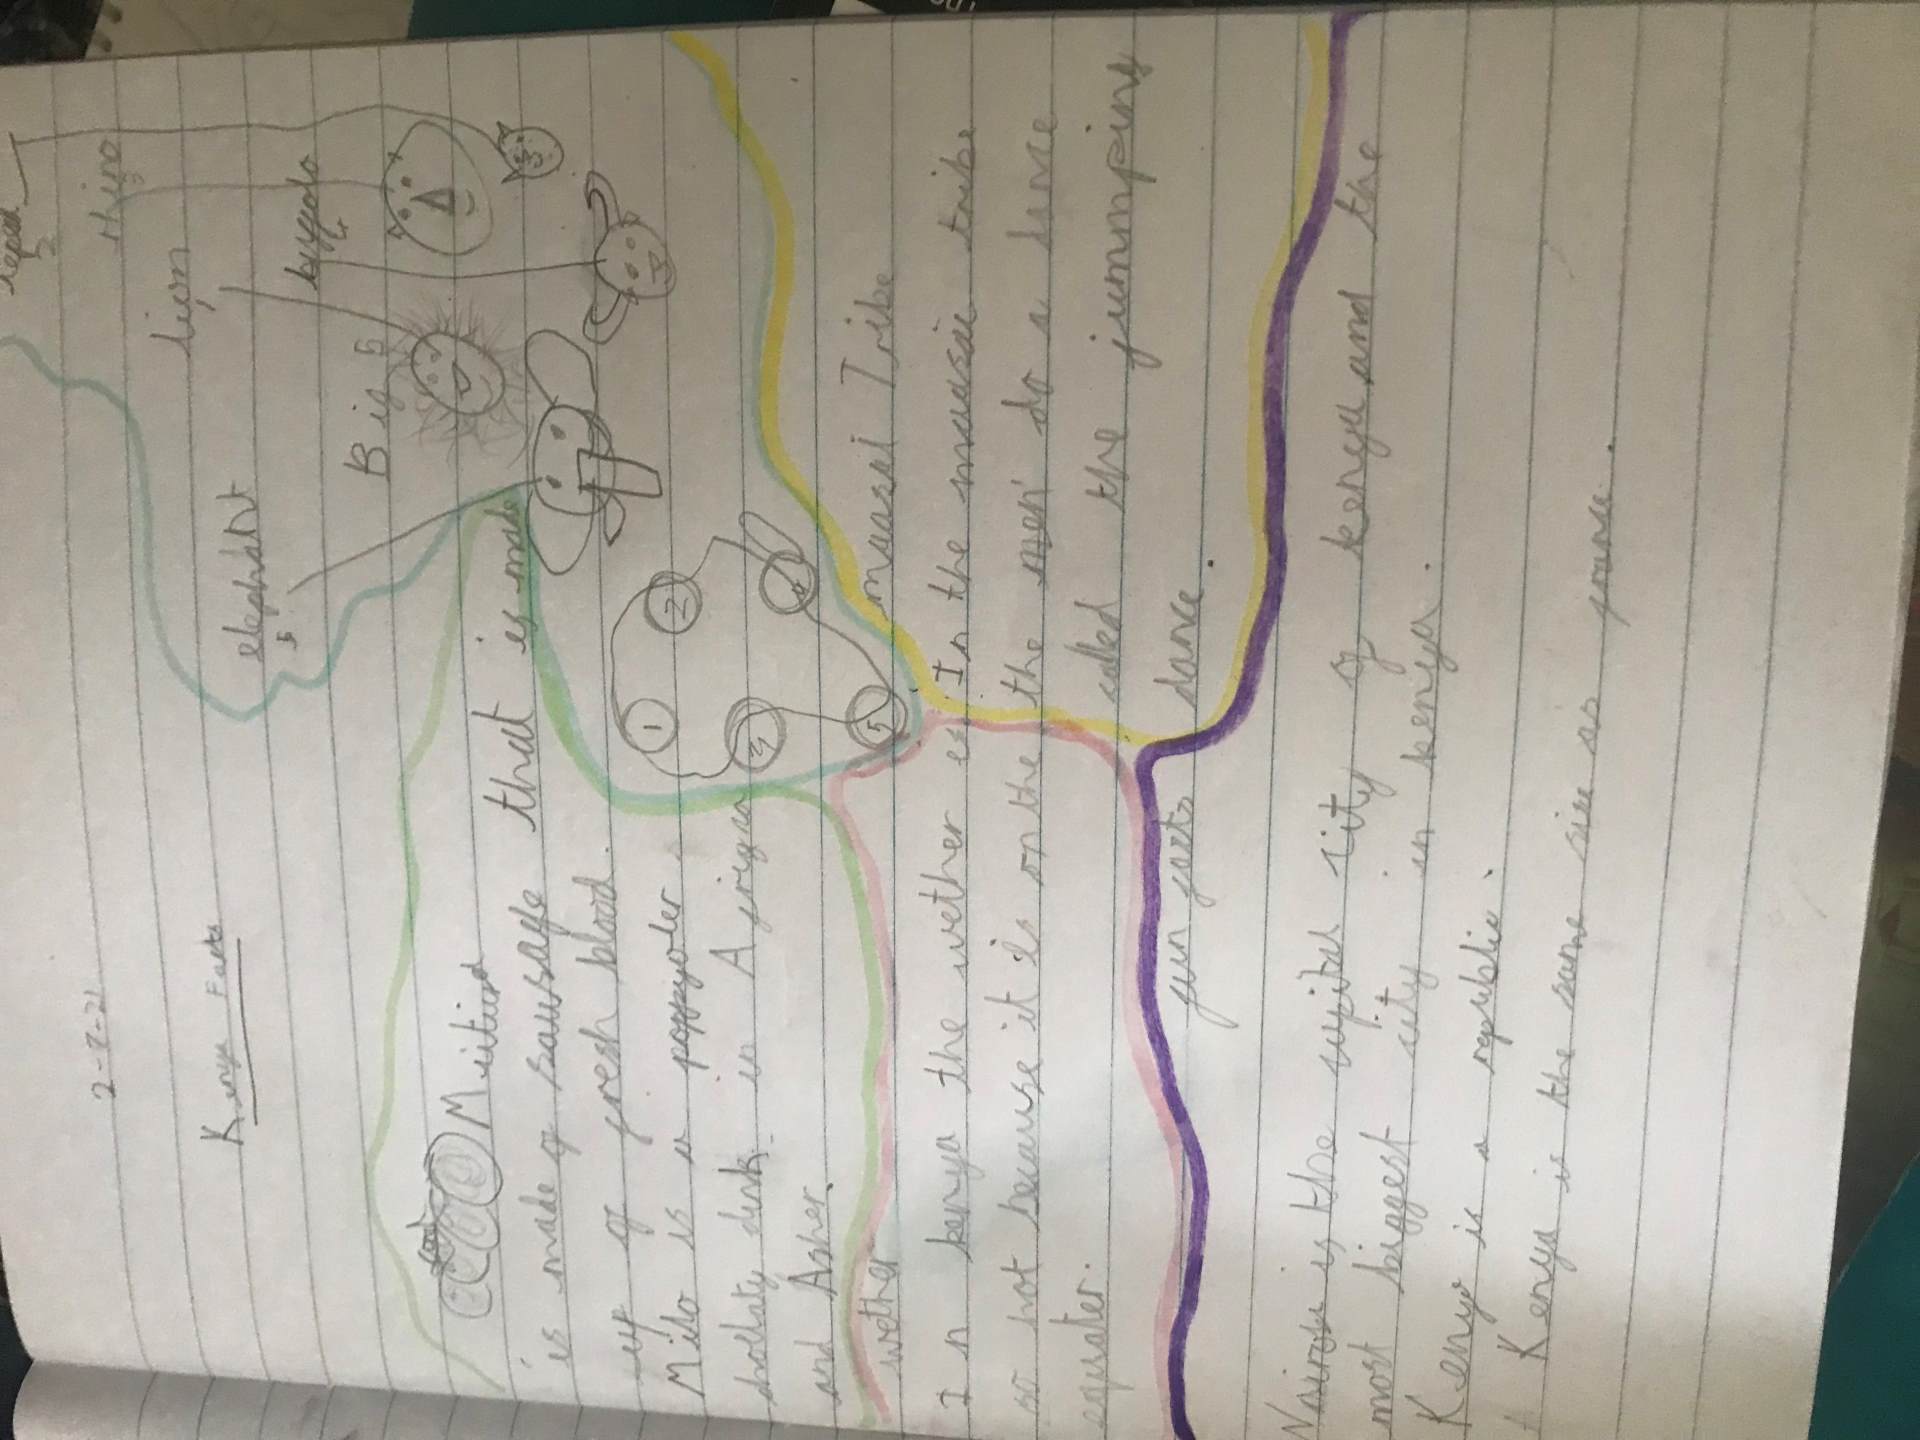 2-7-21
Kenya Facts
repad
2
Hino
3
lion
buffalo
4
elephant
5
Big 5
food
Mitura that is made
is made of sausage
up of fresh blood.
Milo is a poppyoler
choclaty drink in A frigan
and Asher.
1
2
3
4
5
wether
In kenya the wether es
so hot because it is on the
equater.
maasai Tribe
In the masaie tribe
the men do a dance
called the jummping
dance.
fun facts
Nairobi is the capital city of kenya and the
most biggest city in kenya.
Kenya is a republic.
Kenya is the same size as franse.